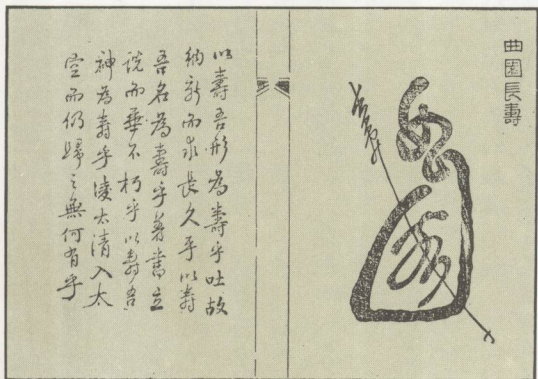 曲園長壽
曲園
長壽
以壽吾形為壽乎吐故
納新而求長久乎以壽
吾名為壽乎著書立
説而垂不朽乎以壽吾
神為壽乎淩太清入太
空而仍歸之無何有乎